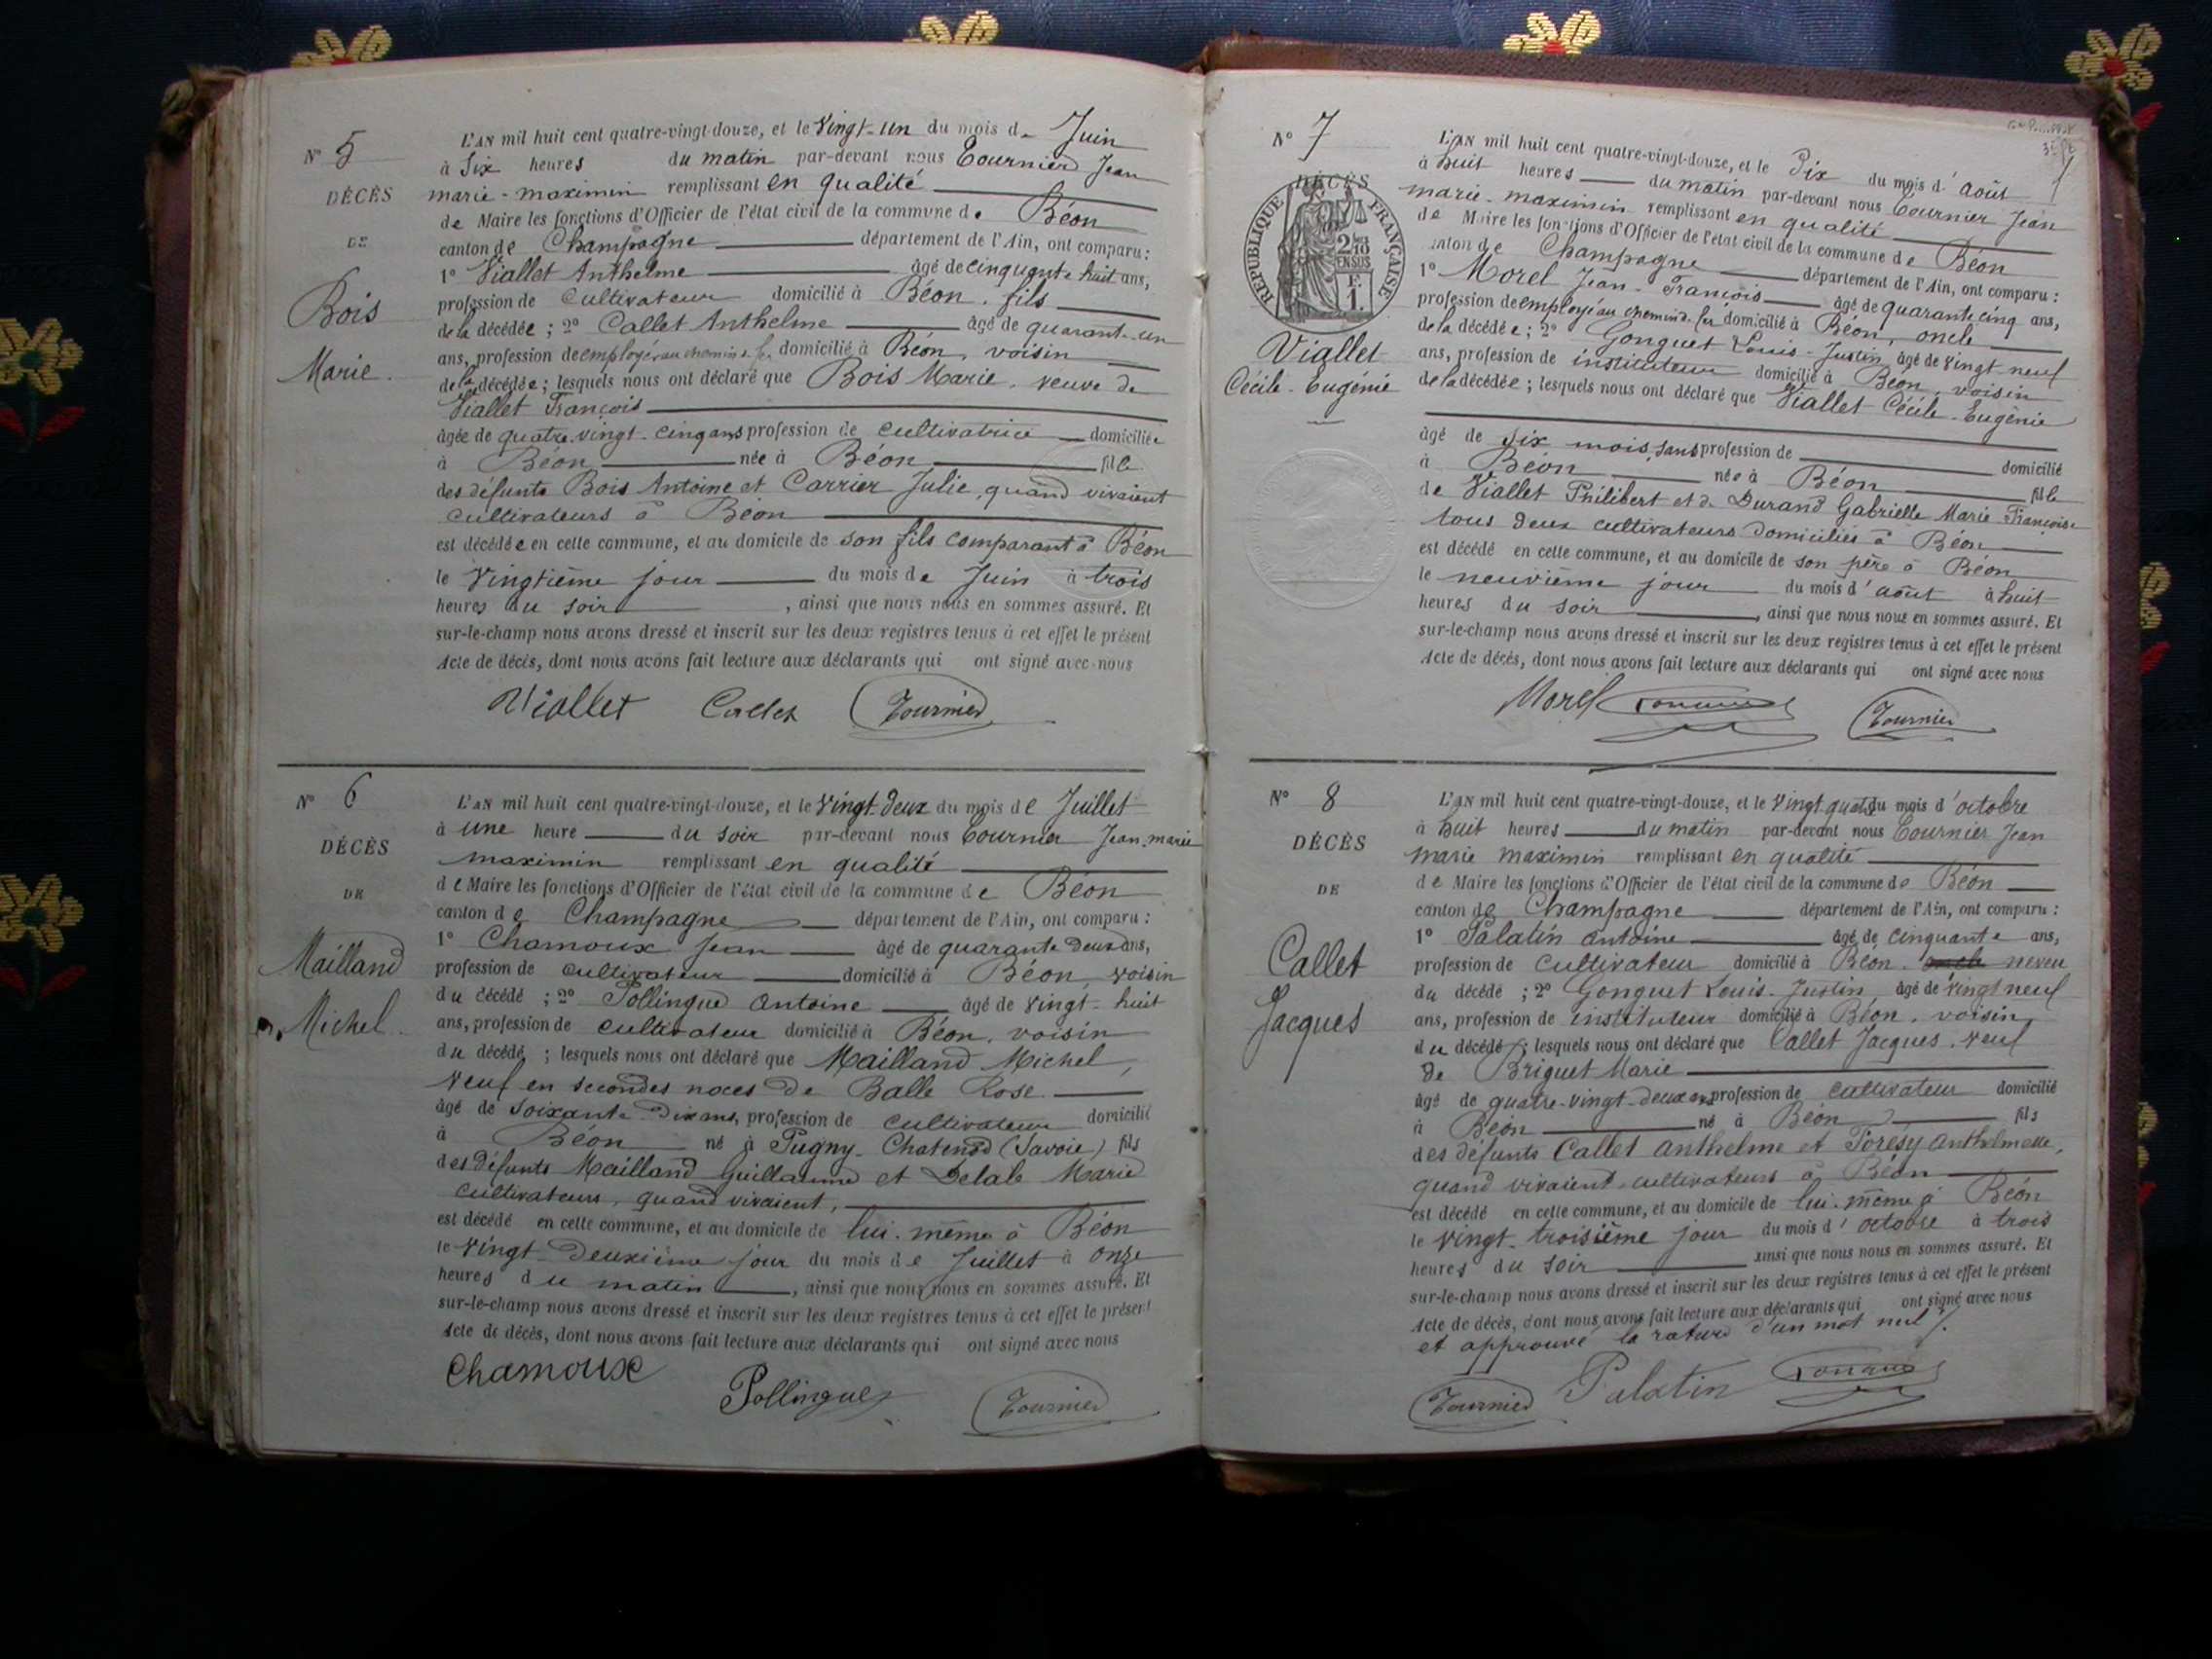 N° 5
DÉCÈS
DE
Bois
Marie.
L'AN mil huit cent quatre-vingt-douze, et le Vingt-un du mois de Juin
à Six heures du matin par-devant nous Tournier Jean
marie-maximin remplissant en qualité
de Maire les fonctions d'Officier de l'état civil de la commune de Béon
canton de Champagne département de l'Ain, ont comparu :
1° Viallet Anthelme âgé de cinquante huit ans,
profession de Cultivateur domicilié à Béon, fils
de la décédée ; 2° Callet Anthelme âgé de quarante-un
ans, profession de employé au chemin de fer domicilié à Béon, voisin
de la décédée ; lesquels nous ont déclaré que Bois Marie, veuve de
Viallet François
âgée de quatre-vingt-cinq ans profession de cultivatrice domiciliée
à Béon née à Béon fille
des défunts Bois Antoine et Carrier Julie, quand vivaient
cultivateurs à Béon
est décédée en cette commune, et au domicile de son fils comparant à Béon
le Vingtième jour du mois de Juin à trois
heures du soir , ainsi que nous nous en sommes assuré. Et
sur-le-champ nous avons dressé et inscrit sur les deux registres tenus à cet effet le présent
Acte de décès, dont nous avons fait lecture aux déclarants qui ont signé avec nous
Viallet Callet Tournier
N° 6
DÉCÈS
DE
Mailland
Michel.
L'AN mil huit cent quatre-vingt-douze, et le Vingt-deux du mois de Juillet
à une heure du soir par-devant nous Tournier Jean-marie
maximin remplissant en qualité
de Maire les fonctions d'Officier de l'état civil de la commune de Béon
canton de Champagne département de l'Ain, ont comparu :
1° Chamoux Jean âgé de quarante deux ans,
profession de cultivateur domicilié à Béon, voisin
du décédé ; 2° Pollingue Antoine âgé de vingt-huit
ans, profession de cultivateur domicilié à Béon, voisin
du décédé ; lesquels nous ont déclaré que Mailland Michel,
veuf en secondes noces de Balle Rose.
âgé de soixante-dix ans, profession de cultivateur domicilié
à Béon né à Pugny-Chatenod (Savoie) fils
des défunts Mailland Guillaume et Delale Marie
cultivateurs, quand vivaient,
est décédé en cette commune, et au domicile de lui-même à Béon
le Vingt-deuxième jour du mois de Juillet à onze
heures du matin , ainsi que nous nous en sommes assuré. Et
sur-le-champ nous avons dressé et inscrit sur les deux registres tenus à cet effet le présent
Acte de décès, dont nous avons fait lecture aux déclarants qui ont signé avec nous
Chamoux
Pollingue Tournier
N° 7
DÉCÈS
RÉPUBLIQUE FRANÇAISE
Viallet
Cécile-Eugénie
L'AN mil huit cent quatre-vingt-douze, et le Dix du mois d'août
à huit heures du matin par-devant nous Tournier Jean
marie-maximin remplissant en qualité
de Maire les fonctions d'Officier de l'état civil de la commune de Béon
canton de Champagne département de l'Ain, ont comparu :
1° Morel Jean-François âgé de quarante cinq ans,
profession de employé au chemin de fer domicilié à Béon, oncle
de la décédée ; 2° Gonguet Louis-Justin, âgé de vingt neuf
ans, profession de instituteur domicilié à Béon, voisin
de la décédée ; lesquels nous ont déclaré que Viallet Cécile-Eugénie
âgé de Six mois, sans profession de domicilié
à Béon née à Béon fille
de Viallet Philibert et de Durand Gabrielle Marie Françoise
tous deux cultivateurs domiciliés à Béon
est décédé en cette commune, et au domicile de son père à Béon
le neuvième jour du mois d'août à huit
heures du soir , ainsi que nous nous en sommes assuré. Et
sur-le-champ nous avons dressé et inscrit sur les deux registres tenus à cet effet le présent
Acte de décès, dont nous avons fait lecture aux déclarants qui ont signé avec nous
Morel Tournier
N° 8
DÉCÈS
DE
Callet
Jacques
L'AN mil huit cent quatre-vingt-douze, et le Vingt quatre du mois d'octobre
à huit heures du matin par-devant nous Tournier Jean
marie maximin remplissant en qualité
de Maire les fonctions d'Officier de l'état civil de la commune de Béon
canton de Champagne département de l'Ain, ont comparu :
1° Palatin antoine âgé de cinquante ans,
profession de cultivateur domicilié à Béon, neveu
du décédé ; 2° Gonguet Louis-Justin, âgé de vingt neuf
ans, profession de instituteur domicilié à Béon, voisin
du décédé ; lesquels nous ont déclaré que Callet Jacques, veuf
de Briguet Marie
âgé de quatre-vingt-deux ans profession de cultivateur domicilié
à Béon né à Béon fils
des défunts Callet anthelme et anthelmette,
quand vivaient cultivateurs à Béon
est décédé en cette commune, et au domicile de lui-même à Béon
le Vingt-troisième jour du mois d'octobre à trois
heures du soir ainsi que nous nous en sommes assuré. Et
sur-le-champ nous avons dressé et inscrit sur les deux registres tenus à cet effet le présent
Acte de décès, dont nous avons fait lecture aux déclarants qui ont signé avec nous
et approuvé la rature d'un mot nul.
Tournier Palatin